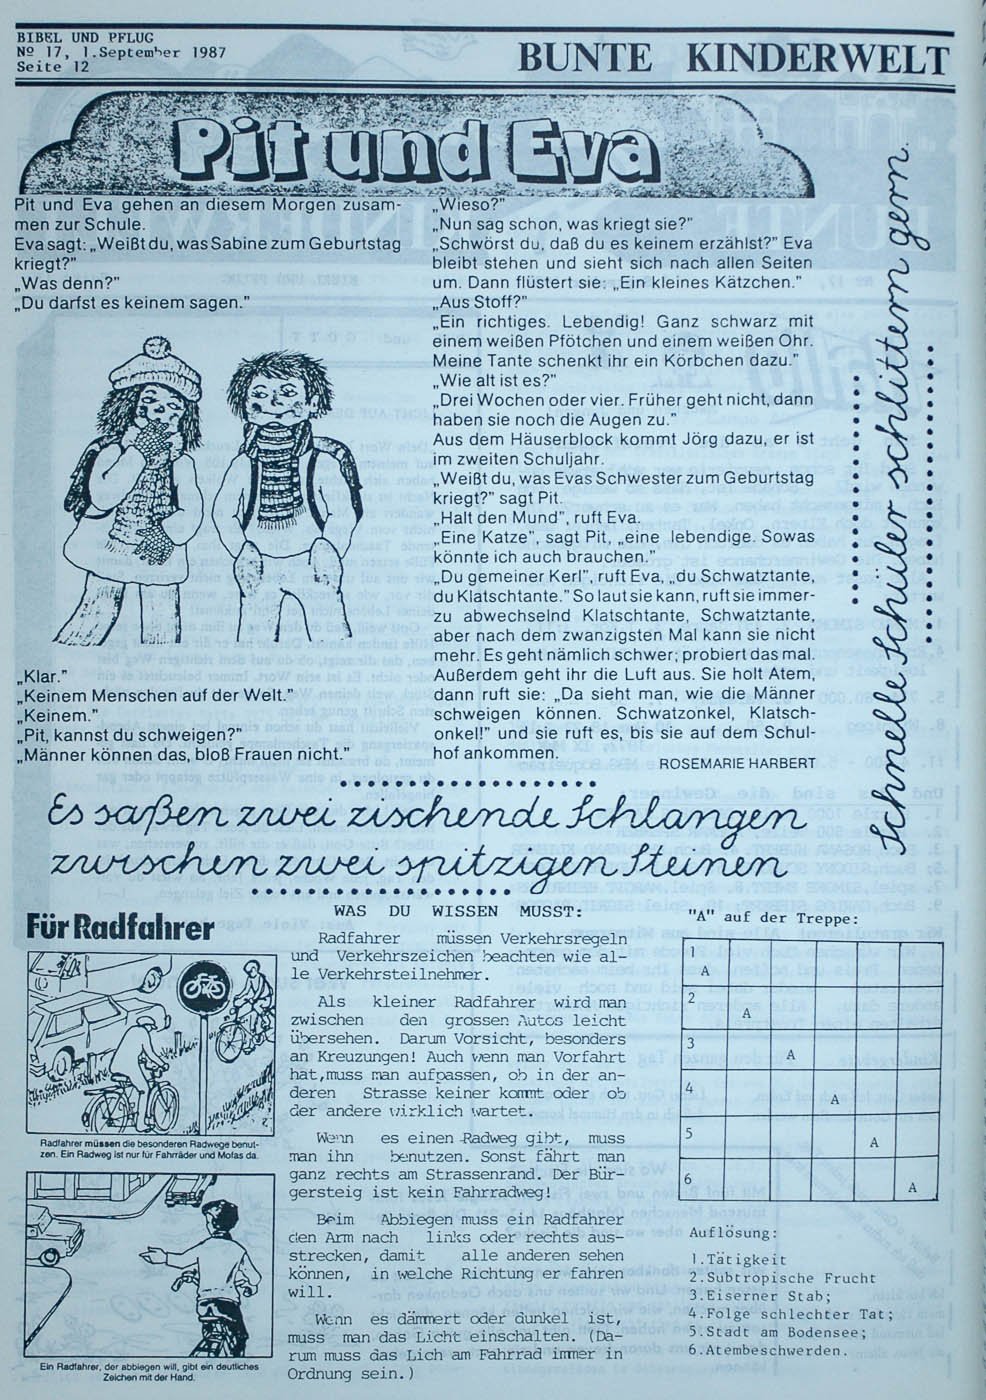 BIBEL UND PFLUG
Nº 17, 1.September 1987
Seite 12
BUNTE KINDERWELT
Pit und Eva
Pit und Eva gehen an diesem Morgen zusam-
men zur Schule.
Eva sagt: „Weißt du, was Sabine zum Geburtstag
kriegt?"
„Was denn?"
„Du darfst es keinem sagen."
„Klar."
„Keinem Menschen auf der Welt."
„Keinem."
„Pit, kannst du schweigen?"
„Männer können das, bloß Frauen nicht."
„Wieso?"
„Nun sag schon, was kriegt sie?"
„Schwörst du, daß du es keinem erzählst?" Eva
bleibt stehen und sieht sich nach allen Seiten
um. Dann flüstert sie: „Ein kleines Kätzchen."
„Aus Stoff?"
„Ein richtiges. Lebendig! Ganz schwarz mit
einem weißen Pfötchen und einem weißen Ohr.
Meine Tante schenkt ihr ein Körbchen dazu."
„Wie alt ist es?"
„Drei Wochen oder vier. Früher geht nicht, dann
haben sie noch die Augen zu."
Aus dem Häuserblock kommt Jörg dazu, er ist
im zweiten Schuljahr.
„Weißt du, was Evas Schwester zum Geburtstag
kriegt?" sagt Pit.
„Halt den Mund", ruft Eva.
„Eine Katze", sagt Pit, „eine lebendige. Sowas
könnte ich auch brauchen."
„Du gemeiner Kerl", ruft Eva, „du Schwatztante,
du Klatschtante." So laut sie kann, ruft sie immer-
zu abwechselnd Klatschtante, Schwatztante,
aber nach dem zwanzigsten Mal kann sie nicht
mehr. Es geht nämlich schwer; probiert das mal.
Außerdem geht ihr die Luft aus. Sie holt Atem,
dann ruft sie: „Da sieht man, wie die Männer
schweigen können. Schwatzonkel, Klatsch-
onkel!" und sie ruft es, bis sie auf dem Schul-
hof ankommen.
ROSEMARIE HARBERT
Schnelle Schüler schlittern gern.
Es saßen zwei zischende Schlangen
zwischen zwei spitzigen Steinen
Für Radfahrer
Radfahrer müssen die besonderen Radwege benut-
zen. Ein Radweg ist nur für Fahrräder und Mofas da.
Ein Radfahrer, der abbiegen will, gibt ein deutliches
Zeichen mit der Hand.
WAS DU WISSEN MUSST:
Radfahrer müssen Verkehrsregeln
und Verkehrszeichen beachten wie al-
le Verkehrsteilnehmer.
Als kleiner Radfahrer wird man
zwischen den grossen Autos leicht
übersehen. Darum Vorsicht, besonders
an Kreuzungen! Auch wenn man Vorfahrt
hat,muss man aufpassen, ob in der an-
deren Strasse keiner kommt oder ob
der andere wirklich wartet.
Wenn es einen Radweg gibt, muss
man ihn benutzen. Sonst fährt man
ganz rechts am Strassenrand. Der Bür-
gersteig ist kein Fahrradweg!
Beim Abbiegen muss ein Radfahrer
den Arm nach links oder rechts aus-
strecken, damit alle anderen sehen
können, in welche Richtung er fahren
will.
Wenn es dämmert oder dunkel ist,
muss man das Licht einschalten. (Da-
rum muss das Lich am Fahrrad immer in
Ordnung sein.)
"A" auf der Treppe:
1 A
2 A
3 A
4 A
5 A
6 A
Auflösung:
1.Tätigkeit
2.Subtropische Frucht
3.Eiserner Stab;
4.Folge schlechter Tat;
5.Stadt am Bodensee;
6.Atembeschwerden.